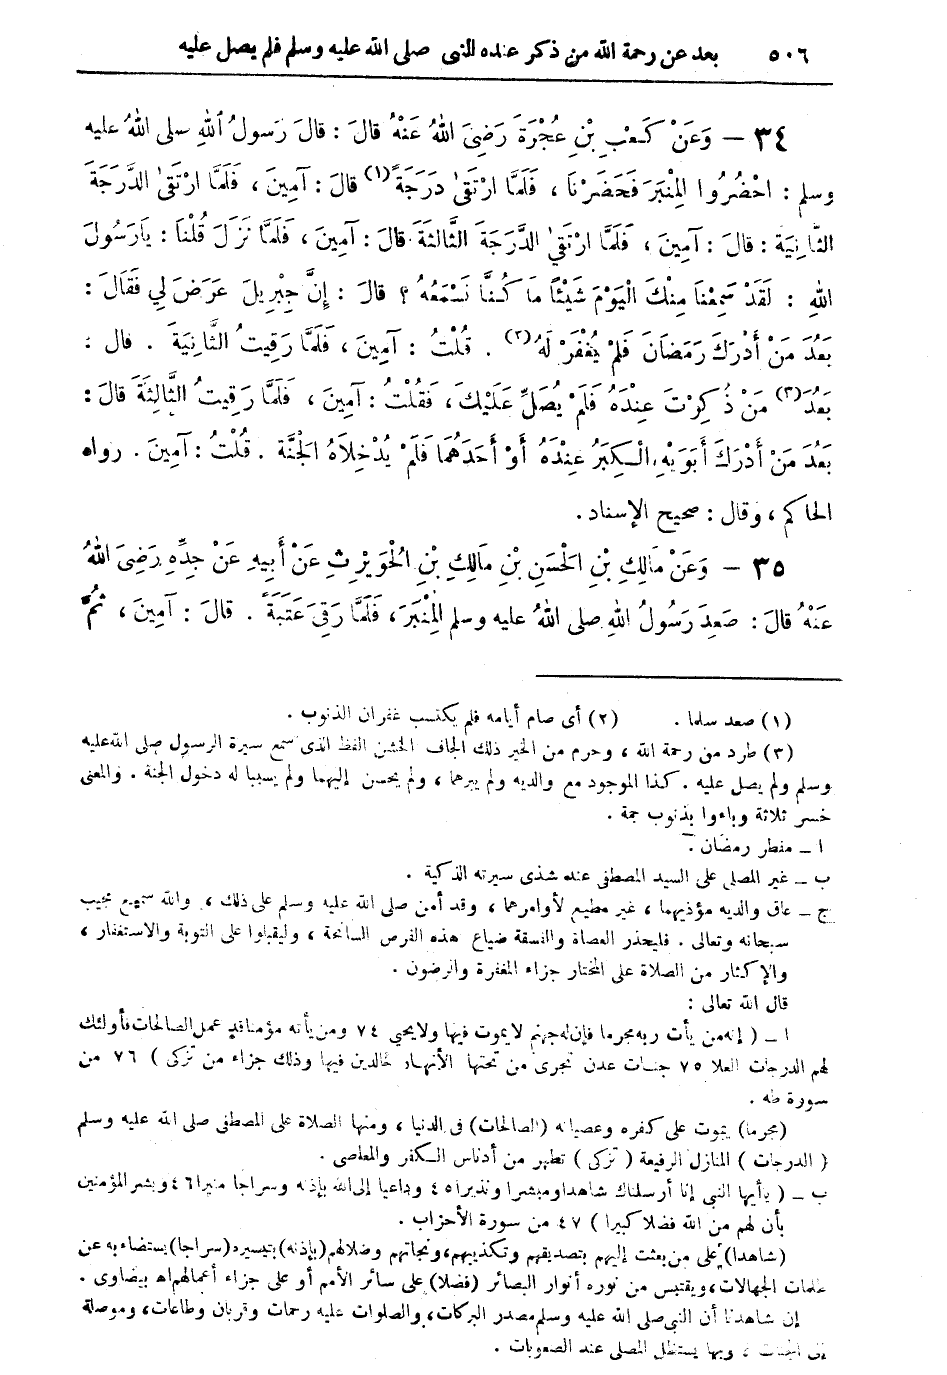 ٥٠٦ بعد عن رحمة الله من ذكر عنده النبي صلى الله عليه وسلم فلم يصل عليه
٣٤ – وَعَنْ كَعْبِ بْنِ عُجْرَةَ رَضِىَ اللهُ عَنْهُ قالَ : قالَ رَسولُ اللهِ صلى اللهُ عليه
وسلم : احْضُرُوا المِنْبَرَ فَحَضَرْنَا ، فَلَمَّا ارْتَقىٰ دَرَجَةً (١) قالَ : آمِينَ ، فَلَمَّا ارْتَقىٰ الدَّرَجَةَ
الثَّانِيَةَ : قالَ : آمِينَ ، فَلَمَّا ارْتَقىٰ الدَّرَجَةَ الثَّالِثَةَ قالَ : آمِينَ ، فَلَمَّا نَزَلَ قُلْنَا : يارَسُولَ
اللهِ : لَقَدْ سَمِعْنَا مِنْكَ الْيَوْمَ شَيْئًا مَا كُنَّا نَسْمَعُهُ ؟ قالَ : إِنَّ جِبْرِيلَ عَرَضَ لِي فَقَالَ :
بَعُدَ مَنْ أَدْرَكَ رَمَضَانَ فَلَمْ يُغْفَرْ لَهُ (٢) . قُلْتُ : آمِينَ ، فَلَمَّا رَقِيتُ الثَّانِيَةَ . قال :
بَعُدَ (٣) مَنْ ذُكِرْتَ عِنْدَهُ فَلَمْ يُصَلِّ عَلَيْكَ ، فَقُلْتُ : آمِينَ ، فَلَمَّا رَقِيتُ الثَّالِثَةَ قالَ :
بَعُدَ مَنْ أَدْرَكَ أَبَوَيْهِ الْكِبَرُ عِنْدَهُ أَوْ أَحَدَهُمَا فَلَمْ يُدْخِلاَهُ الْجَنَّةَ . قُلْتُ : آمِينَ . رواه
الحاكم ، وقال : صحيح الإسناد .
٣٥ – وَعَنْ مَالِكِ بْنِ الْحَسَنِ بْنِ مَالِكِ بْنِ الْحُوَيْرِثِ عَنْ أَبِيهِ عَنْ جَدِّهِ رَضِىَ اللهُ
عَنْهُ قالَ : صَعِدَ رَسُولُ اللهِ صلى اللهُ عليه وسلم الْمِنْبَرَ ، فَلَمَّا رَقِىَ عَتَبَةً . قالَ : آمِينَ ، ثُمَّ
(١) صعد سلما . (٢) أى صام أيامه فلم يكتسب غفران الذنوب .
(٣) طرد من رحمة الله ، وحرم من الخير ذلك الجاف الخشن الفظ الذى سمع سيرة الرسول صلى الله عليه
وسلم ولم يصل عليه . كذا الموجود مع والديه ولم يبرهما ، ولم يحسن إليهما ولم يسببا له دخول الجنة . والمعنى
خسر ثلاثة وباءوا بذنوب جمة .
ا – مفطر رمضان .
ب – غير المصلى على السيد المصطفى عند شذى سيرته الذكية .
ج – عاق والديه مؤذيهما ، غير مطيع لأوامرهما ، وقد أمن صلى الله عليه وسلم على ذلك ، والله سميع مجيب
سبحانه وتعالى . فليحذر العصاة والفسقة ضياع هذه الفرص السانحة ، وليقبلوا على التوبة والاستغفار ،
والإكثار من الصلاة على المختار جزاء المغفرة والرضوان .
قال الله تعالى :
ا – ( إنه من يأت ربه مجرما فإن له جهنم لا يموت فيها ولا يحيى ٧٤ ومن يأته مؤمنا قد عمل الصالحات فأولئك
لهم الدرجات العلا ٧٥ جنات عدن تجرى من تحتها الأنهار خالدين فيها وذلك جزاء من تزكى ) ٧٦ من
سورة طه .
(مجرما) يموت على كفره وعصيانه (الصالحات) فى الدنيا ، ومنها الصلاة على المصطفى صلى الله عليه وسلم
( الدرجات ) المنازل الرفيعة ( تزكى ) تطهر من أدناس الكفر والمعاصى .
ب – ( يأيها النبى إنا أرسلناك شاهدا ومبشرا ونذيرا ٤٥ وداعيا إلى الله بإذنه وسراجا منيرا ٤٦ وبشر المؤمنين
بأن لهم من الله فضلا كبيرا ) ٤٧ من سورة الأحزاب .
(شاهدا) على من بعثت إليهم بتصديقهم وتكذيبهم ، ونجاتهم وضلالهم (بإذنه) بتيسيره (سراجا) يستضاء به عن
ظلمات الجهالات ، ويقتبس من نوره أنوار البصائر (فضلا) على سائر الأمم أو على جزاء أعمالهم اه بيضاوى .
إن شاهدنا أن النبى صلى الله عليه وسلم مصدر البركات ، والصلوات عليه رحمات وقربان وطاعات ، وموصلة
إلى الجنات ، وبها يستظل المصلى عند الصعوبات .